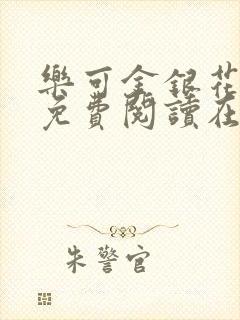 樂可金銀花
免費閱讀在
朱警官